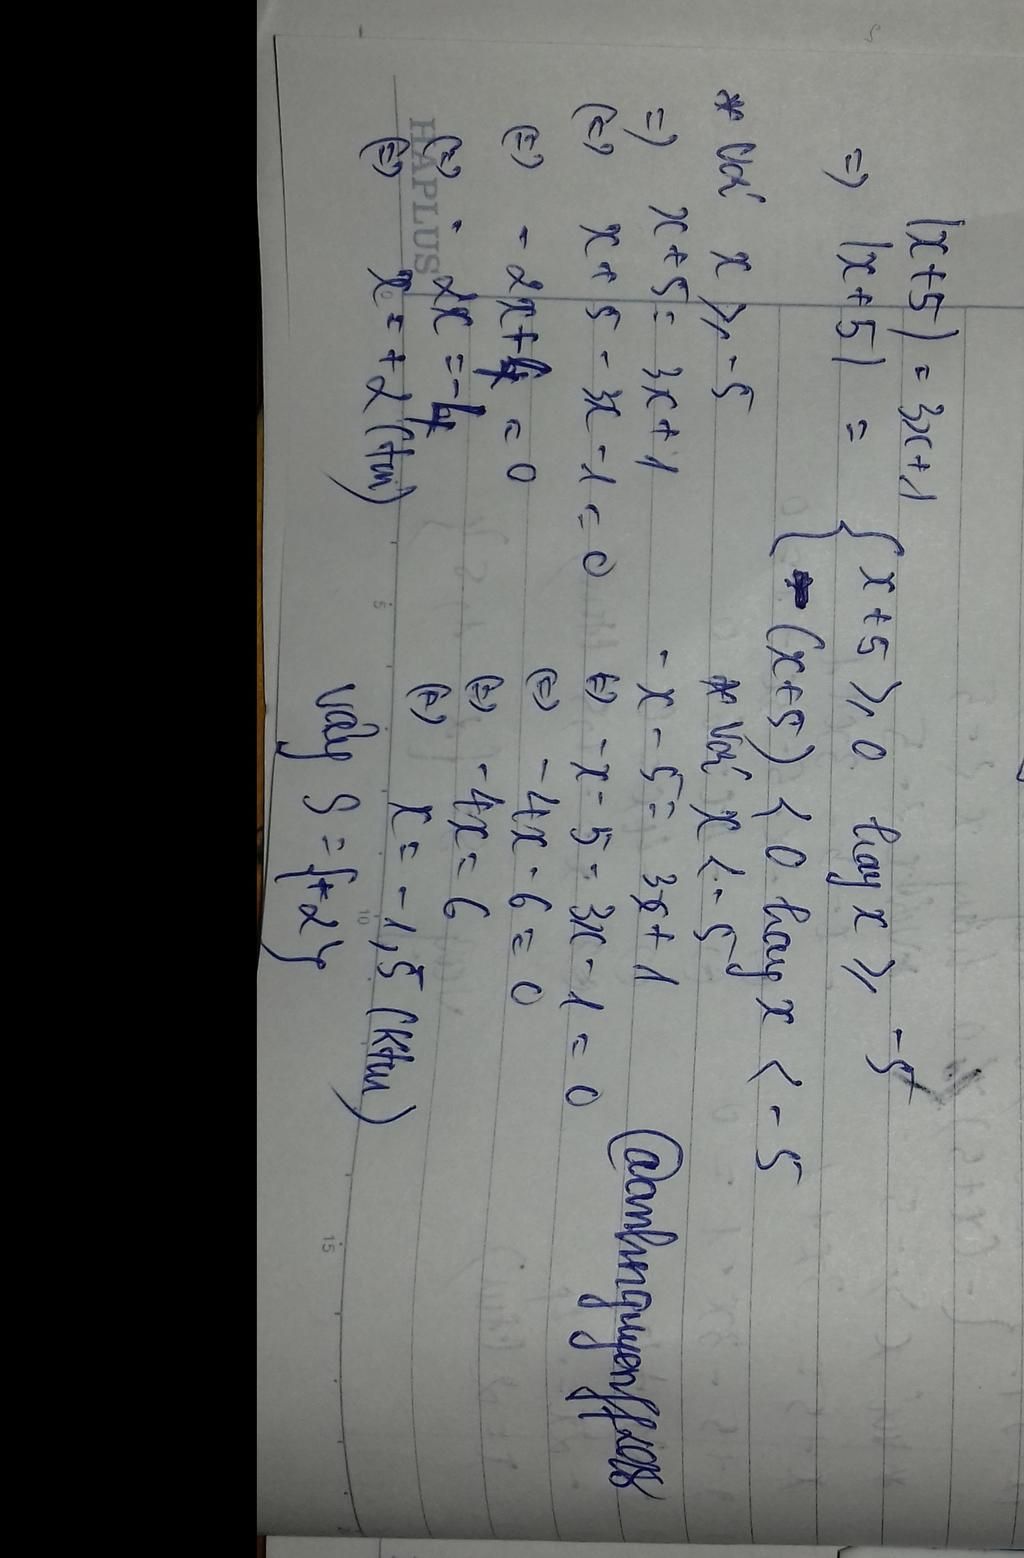 |x+5| = 3x+1
=> |x+5| = { x+5 ≥ 0 hay x ≥ -5
{ -(x+5) < 0 hay x < -5
* Với x ≥ -5
=> x+5 = 3x+1
(=) x+5-3x-1=0
(=) -2x+4=0
(=) -2x=-4
(=) x=+2 (tm)
* Với x < -5
-x-5=3x+1
(=) -x-5-3x-1=0
(=) -4x-6=0
(=) -4x=6
(=) x=-1,5 (ktm)
Vậy S={+2}
@danhnguyen
HAPLUS
5
10
15